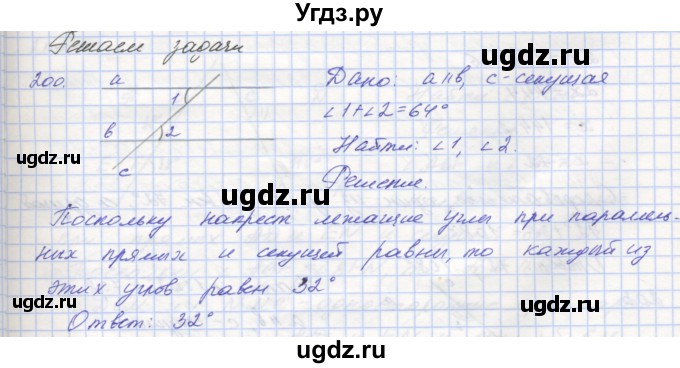 Угдз.ру
Решаем задачи
200.
a
1
в
2
c
Дано: a||в, c-секущая
∠1+∠2=64°
Найти: ∠1, ∠2.
Решение.
Поскольку накрест лежащие углы при параллель-
ных прямых и секущей равны, то каждый из
этих углов равен 32°
Ответ: 32°
ugdz.ru
ugdz.ru
ugdz.ru
ugdz.ru
ugdz.ru
ugdz.ru
ugdz.ru
ugdz.ru
ugdz.ru